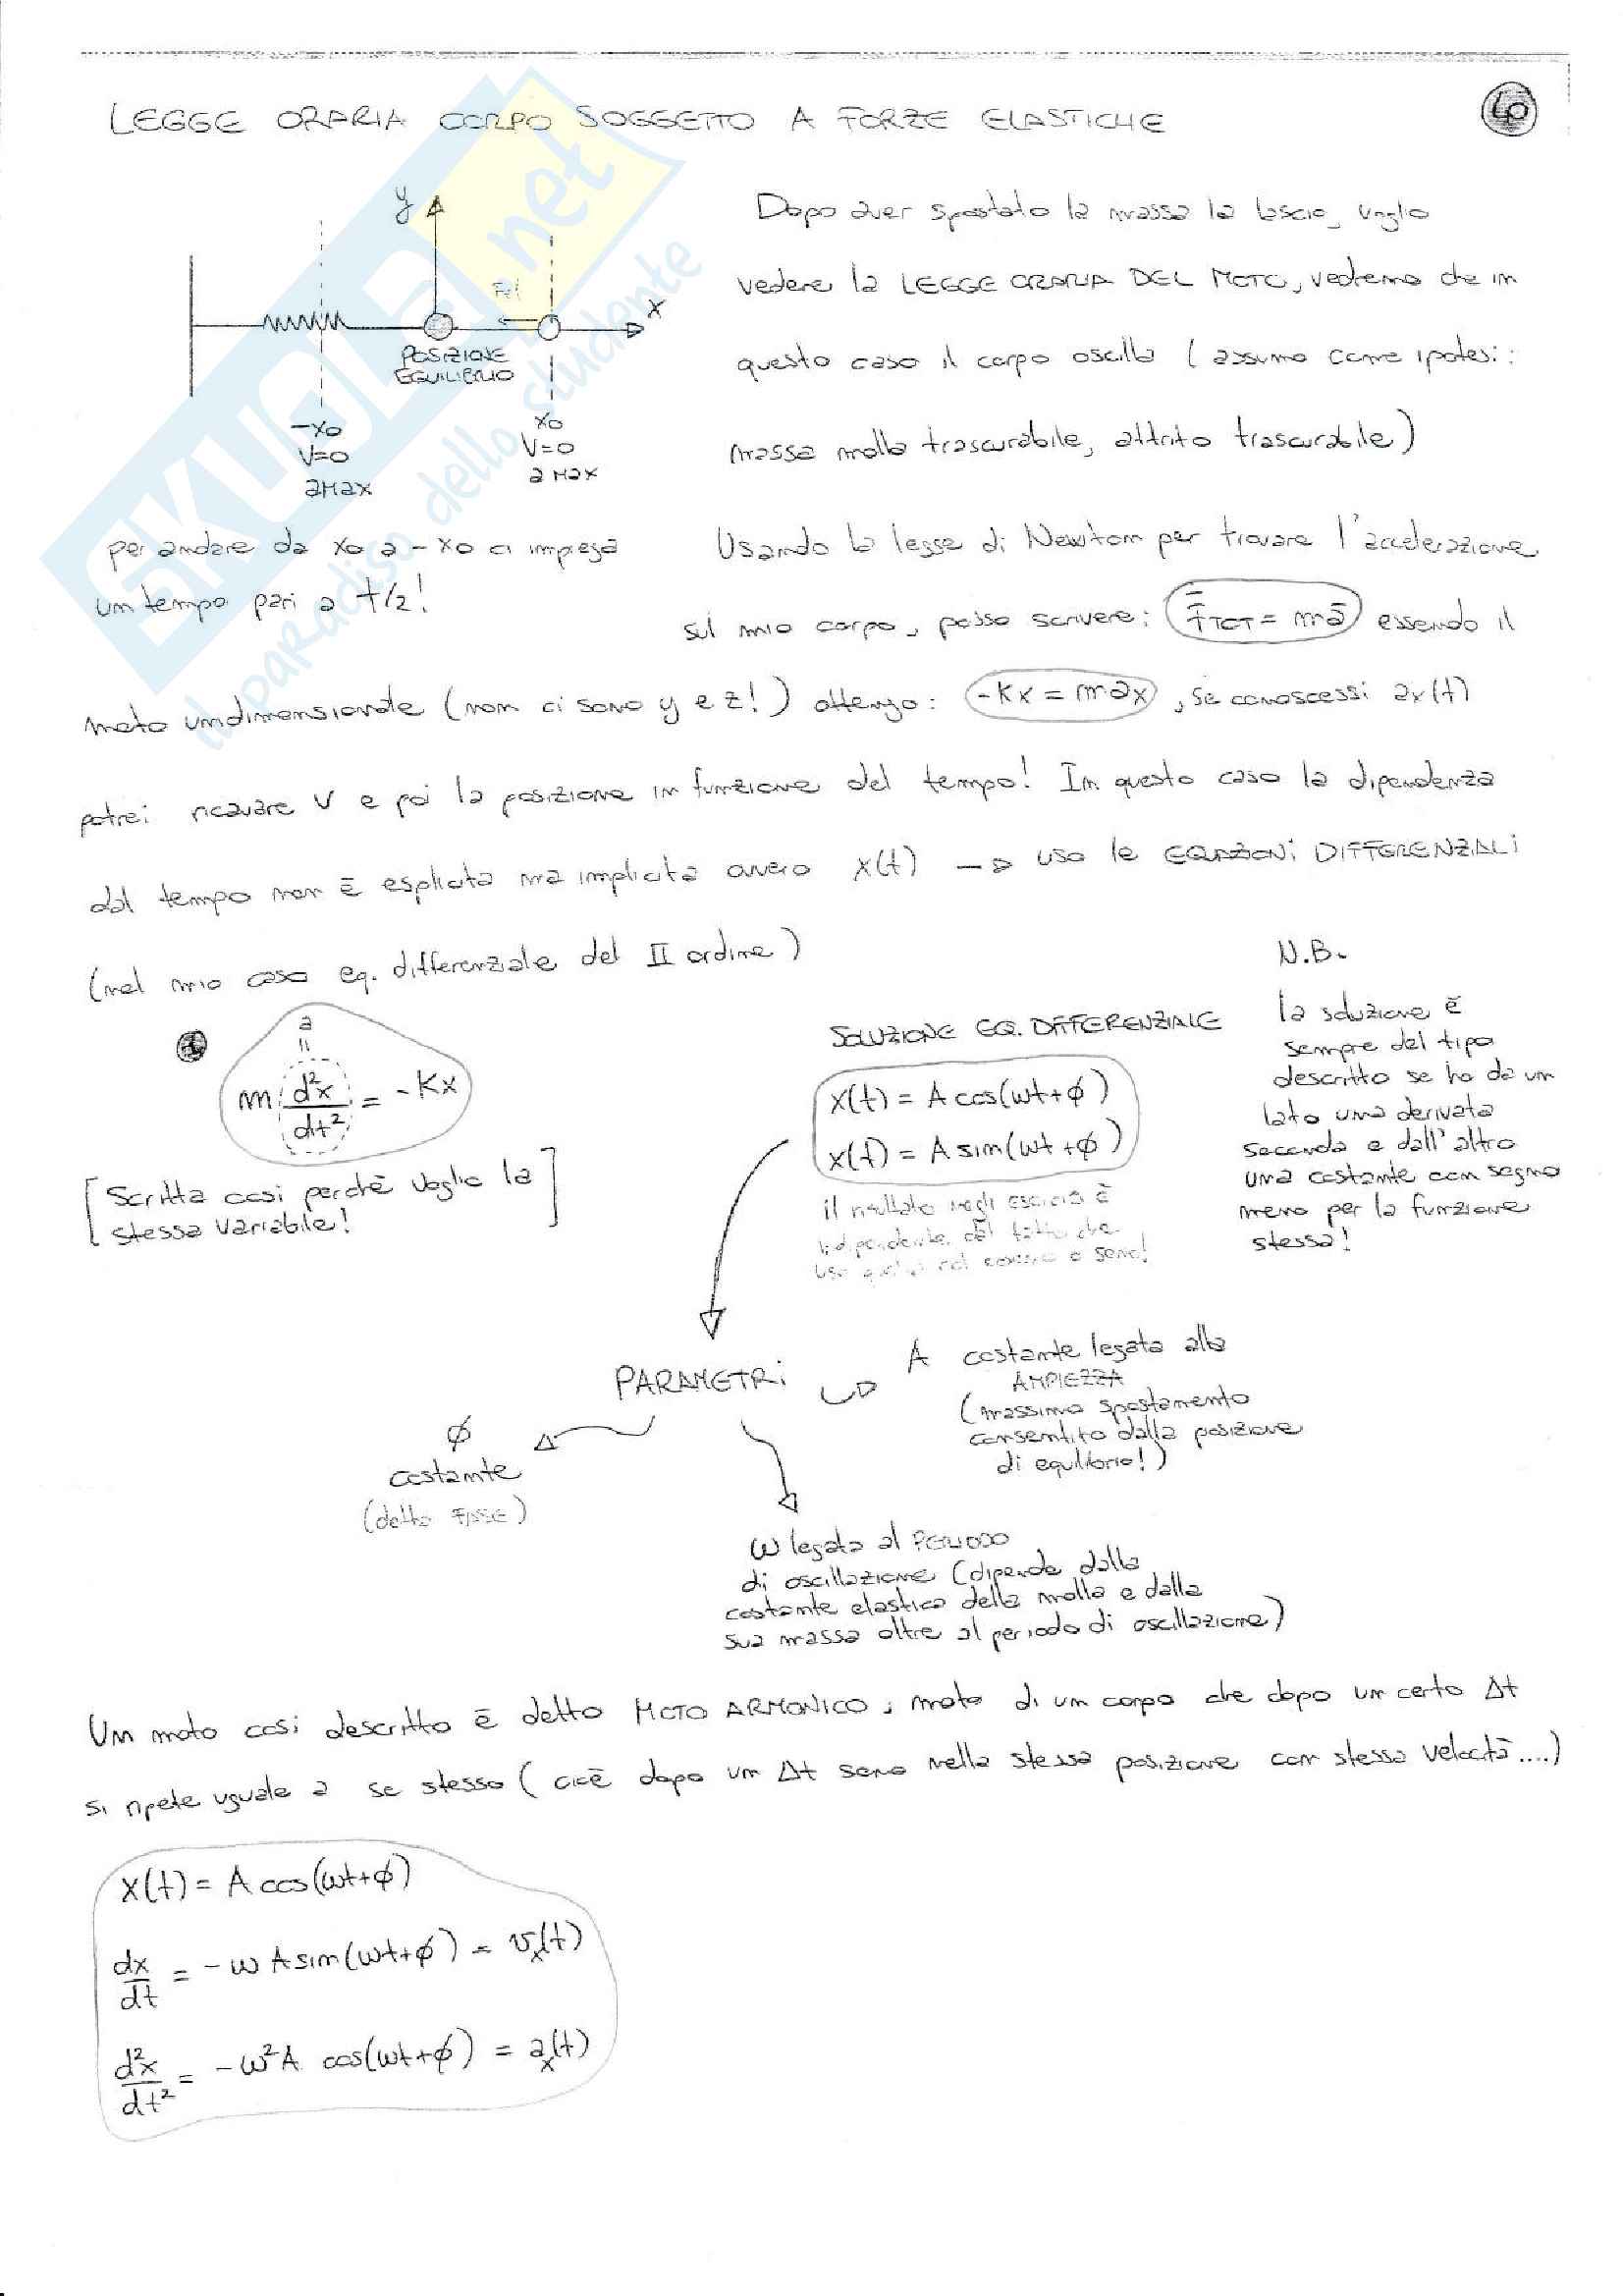 LEGGE ORARIA CORPO SOGGETTO A FORZE ELASTICHE
y
Dopo aver spostato la massa la lascio, voglio
vedere la LEGGE ORARIA DEL MOTO, vedremo che in
Fel
x
POSIZIONE
EQUILIBRIO
questo caso il corpo oscilla (assumo come ipotesi:
-x0
V=0
aMax
x0
V=0
a Max
massa molla trascurabile, attrito trascurabile)
per andare da x0 a -x0 ci impiega
un tempo pari a t/2!
Usando la legge di Newton per trovare l'accelerazione
sul mio corpo, posso scrivere: F̄TOT = mā essendo il
moto unidimensionale (non ci sono y e z!) ottengo: -Kx = max, se conoscessi ax(t)
potrei ricavare V e poi la posizione in funzione del tempo! In questo caso la dipendenza
dal tempo non è esplicita ma implicita ovvero x(t) → uso le EQUAZIONI DIFFERENZIALI
(nel mio caso eq. differenziale del II ordine)
a
=
m d²x/dt² = -Kx
[Scritta così perchè voglio la
stessa variabile!]
SOLUZIONE EQ. DIFFERENZIALE
x(t) = A cos(ωt+φ)
x(t) = A sin(ωt+φ)
il risultato negli esercizi è
indipendente dal fatto che
uso quella col coseno o seno!
N.B.
la soluzione è
sempre del tipo
descritto se ho da un
lato una derivata
seconda e dall'altro
una costante con segno
meno per la funzione
stessa!
PARAMETRI
A costante legata alla
AMPIEZZA
(massimo spostamento
consentito dalla posizione
di equilibrio!)
φ
costante
(detta FASE)
ω legata al PERIODO
di oscillazione (dipende dalla
costante elastica della molla e dalla
sua massa oltre al periodo di oscillazione)
Un moto così descritto è detto MOTO ARMONICO; moto di un corpo che dopo un certo Δt
si ripete uguale a se stesso (cioè dopo un Δt sono nella stessa posizione con stessa velocità....)
x(t) = A cos(ωt+φ)
dx/dt = -ω A sin(ωt+φ) = vx(t)
d²x/dt² = -ω²A cos(ωt+φ) = ax(t)
SKUOLA.net
il paradiso dello studente